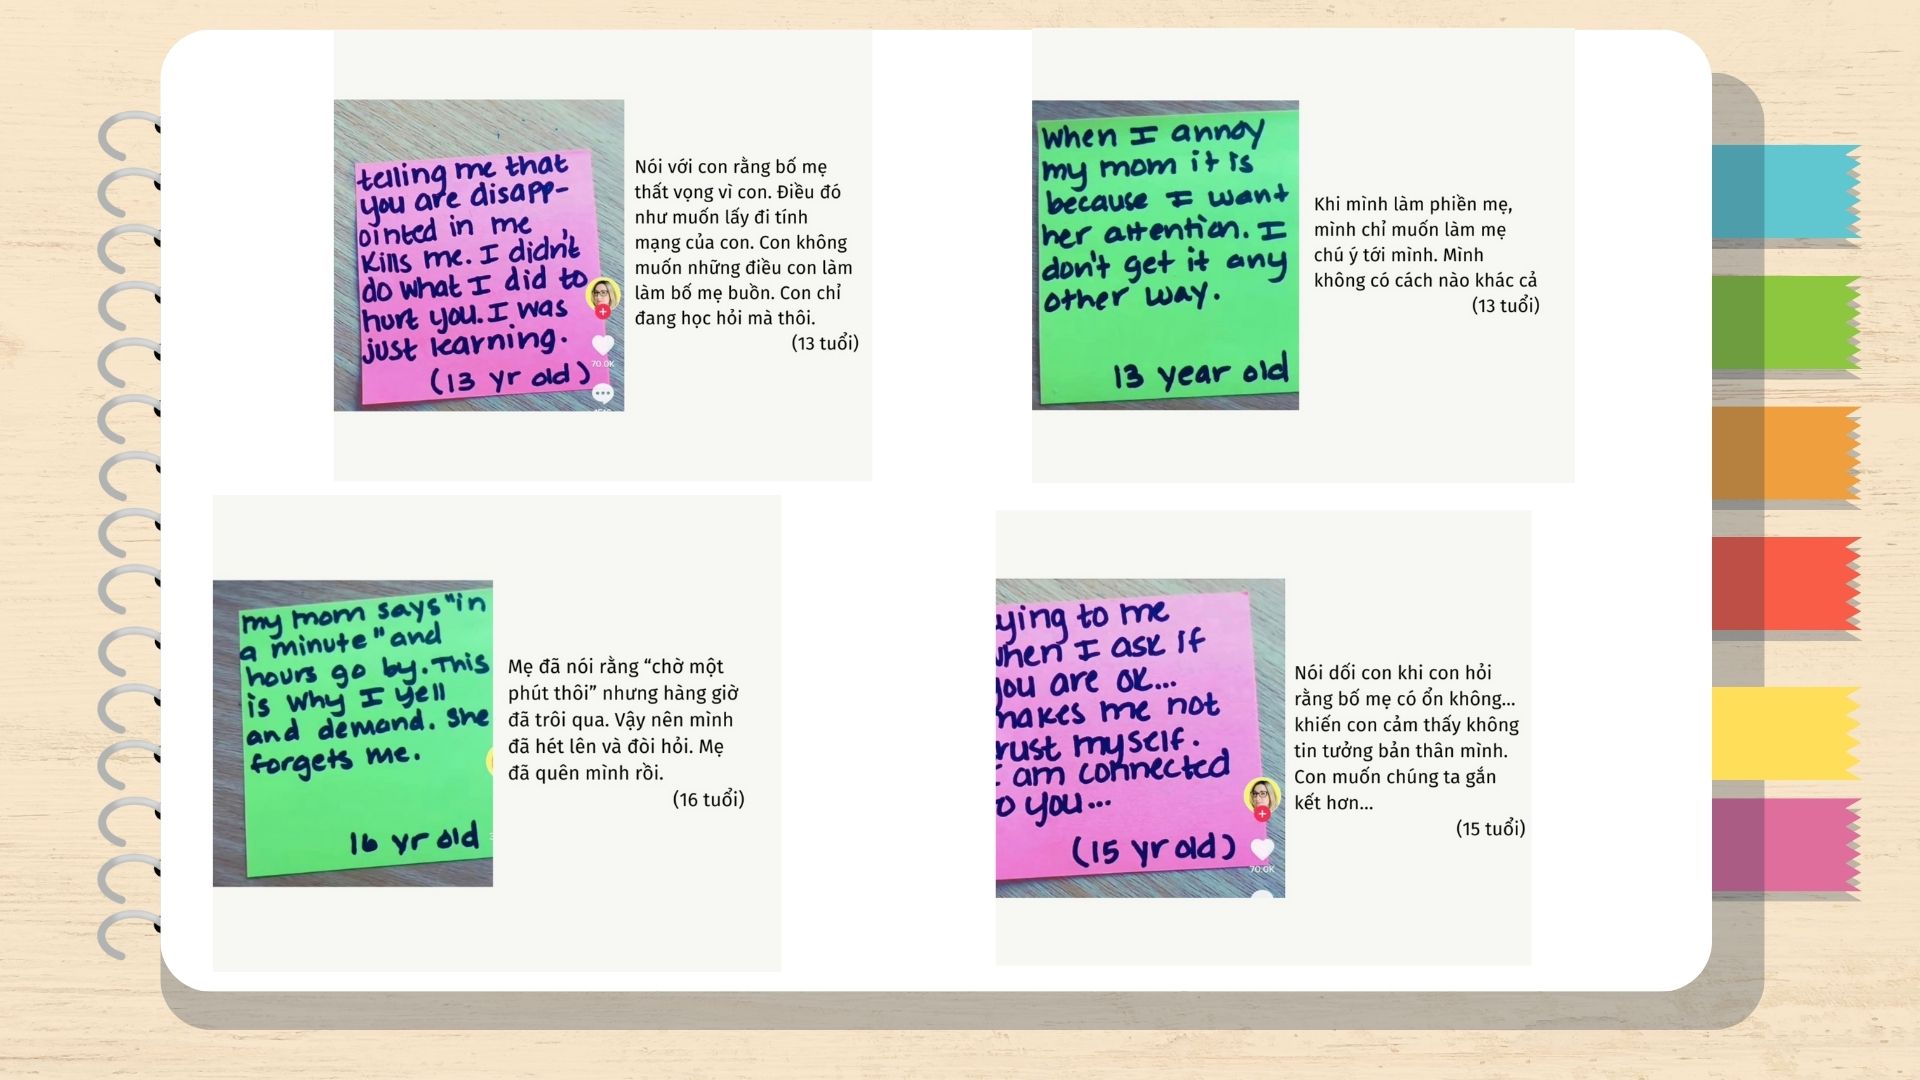 telling me that
you are disapp-
ointed in me
kills me. I didn't
do what I did to
hurt you. I was
just learning.
(13 yr old)
70.0K
Nói với con rằng bố mẹ
thất vọng vì con. Điều đó
như muốn lấy đi tính
mạng của con. Con không
muốn những điều con làm
làm bố mẹ buồn. Con chỉ
đang học hỏi mà thôi.
(13 tuổi)
When I annoy
my mom it is
because I want
her attention. I
don't get it any
other way.
13 year old
Khi mình làm phiền mẹ,
mình chỉ muốn làm mẹ
chú ý tới mình. Mình
không có cách nào khác cả
(13 tuổi)
my mom says "in
a minute" and
hours go by. This
is why I yell
and demand. She
forgets me.
16 yr old
Mẹ đã nói rằng “chờ một
phút thôi” nhưng hàng giờ
đã trôi qua. Vậy nên mình
đã hét lên và đòi hỏi. Mẹ
đã quên mình rồi.
(16 tuổi)
ying to me
when I ask if
you are ok...
makes me not
rust myself.
I am connected
o you...
(15 yr old)
70.0K
Nói dối con khi con hỏi
rằng bố mẹ có ổn không...
khiến con cảm thấy không
tin tưởng bản thân mình.
Con muốn chúng ta gắn
kết hơn...
(15 tuổi)